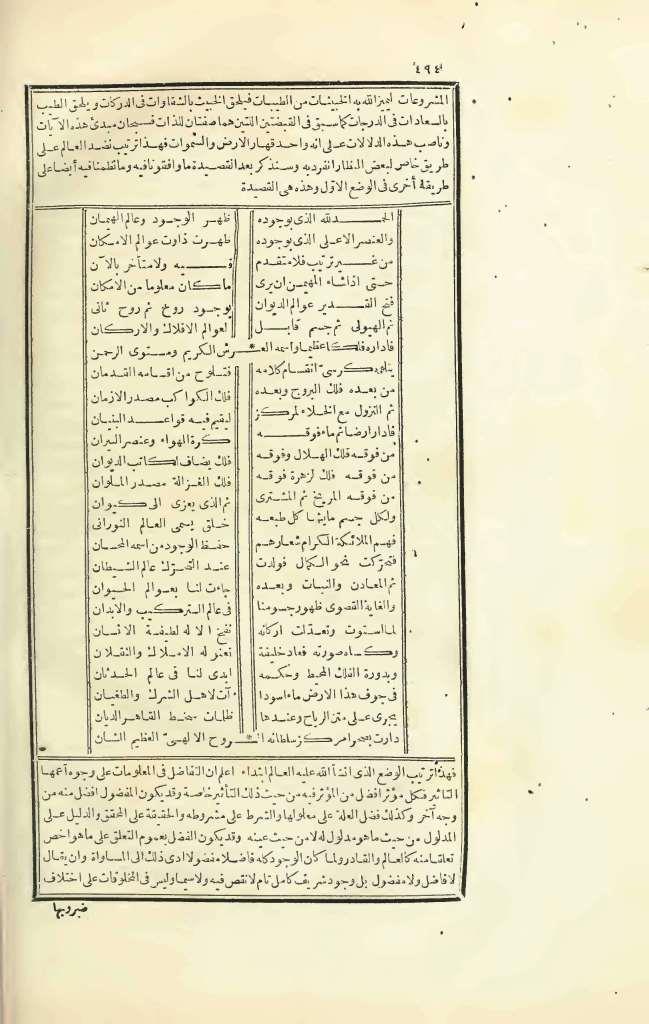 ٤٩٤
المشروعات ليميز الله به الخبيثات من الطيبات فيلحق الخبيث بالشقاوات فى الدركات ويلحق الطيب
بالسعادات فى الدرجات كما سبق فى القبضتين اللتين هما صفتان للذات فسبحان مبدئ هذه الآيات
وناصب هذه الدلالات على انه واحد قهار الارض والسموات فهذا ترتيب نضد العالم على
طريق خاص لبعض النظار انفرد به وسنذكر بعد القصيدة ما وافقونا فيه وما نظمنا فيه أيضا على
طريقة أخرى فى الوضع الاوّل وهذه هى القصيدة
الحمد لله الذى بوجوده ظهر الوجود وعالم الهيمان
والعنصر الاعلى الذى بوجوده ظهرت ذوات عوالم الامكان
من غير ترتيب فلا متقدم فيه ولا متأخر بالآن
حتى اذا شاء المهيمن ان يرى ما كان معلوما من الامكان
فتح القدير عوالم الديوان بوجود روح ثم روح ثانى
ثم الهيولى ثم جسم قابل لعوالم الافلاك والاركان
فاداره فلكا عظيما واسمه العرش الكريم ومستوى الرحمن
يتلوه كرسىّ انقسام كلامه فتلوح من اقسامه القدمان
من بعده فلك البروج وبعده فلك الكواكب مصدر الازمان
ثم النزول مع الخلاء لمركز ليقيم فيه قواعد البنيان
فادار ارضا ثم ماء فوقه كرة الهواء وعنصر النيران
من فوقه فلك الهلال وفوقه فلك يضاف لكاتب الديوان
من فوقه فلك لزهرة فوقه فلك الغزالة مصدر الملوان
من فوقه المريخ ثم المشترى ثم الذى يعزى الى كيوان
ولكل جسم ما يشاكل طبعه خلق يسمى العالم النورانى
فهم الملائكة الكرام شعارهم حفظ الوجود من اسمه المحسان
فتحركت نحو الكمال فولدت عند التحرك عالم الشيطان
ثم المعادن والنبات وبعده جاءت لنا بعوالم الحيوان
والغاية القصوى ظهور جسومنا فى عالم التركيب والابدان
لما استوت وتعدلت اركانه نفخ الاله لطيفة الانسان
وكساه صورته فعاد خليفة تعنو له الاملاك والثقلان
وبدورة الفلك المحيط وحكمه ابدى لنا فى عالم الحدثان
فى جوف هذا الارض ماء اسودا آت لاهل الشرك والطغيان
يجرى على متن الرياح وعندها ظلمات سخط القاهر الديان
دارت بصخر مركز سلطانه الروح الالهىّ العظيم الشان
فهذا ترتيب الوضع الذى انشأ الله عليه العالم ابتداء اعلم ان التفاضل فى المعلومات على وجوه أعمها
التاثير فكل مؤثر افضل من المؤثر فيه من حيث ذلك التأثير خاصة وقد يكون المفضول افضل منه من
وجه آخر وكذلك فضل العلة على معلولها والشرط على مشروطه والحقيقة على المحقق والدليل على
المدلول من حيث ما هو مدلول له لا من حيث عينه وقد يكون الفضل بعموم التعلق على ما هو اخص
تعلقا منه كالعالم والقادر ولما كان الوجود كله فاضلا مفضولا ادى ذلك الى المساواة وان يقال
لا فاضل ولا مفضول بل وجود شريف كامل تام لا نقص فيه ولا سيما وليس فى المخلوقات على اختلاف
ضروبها